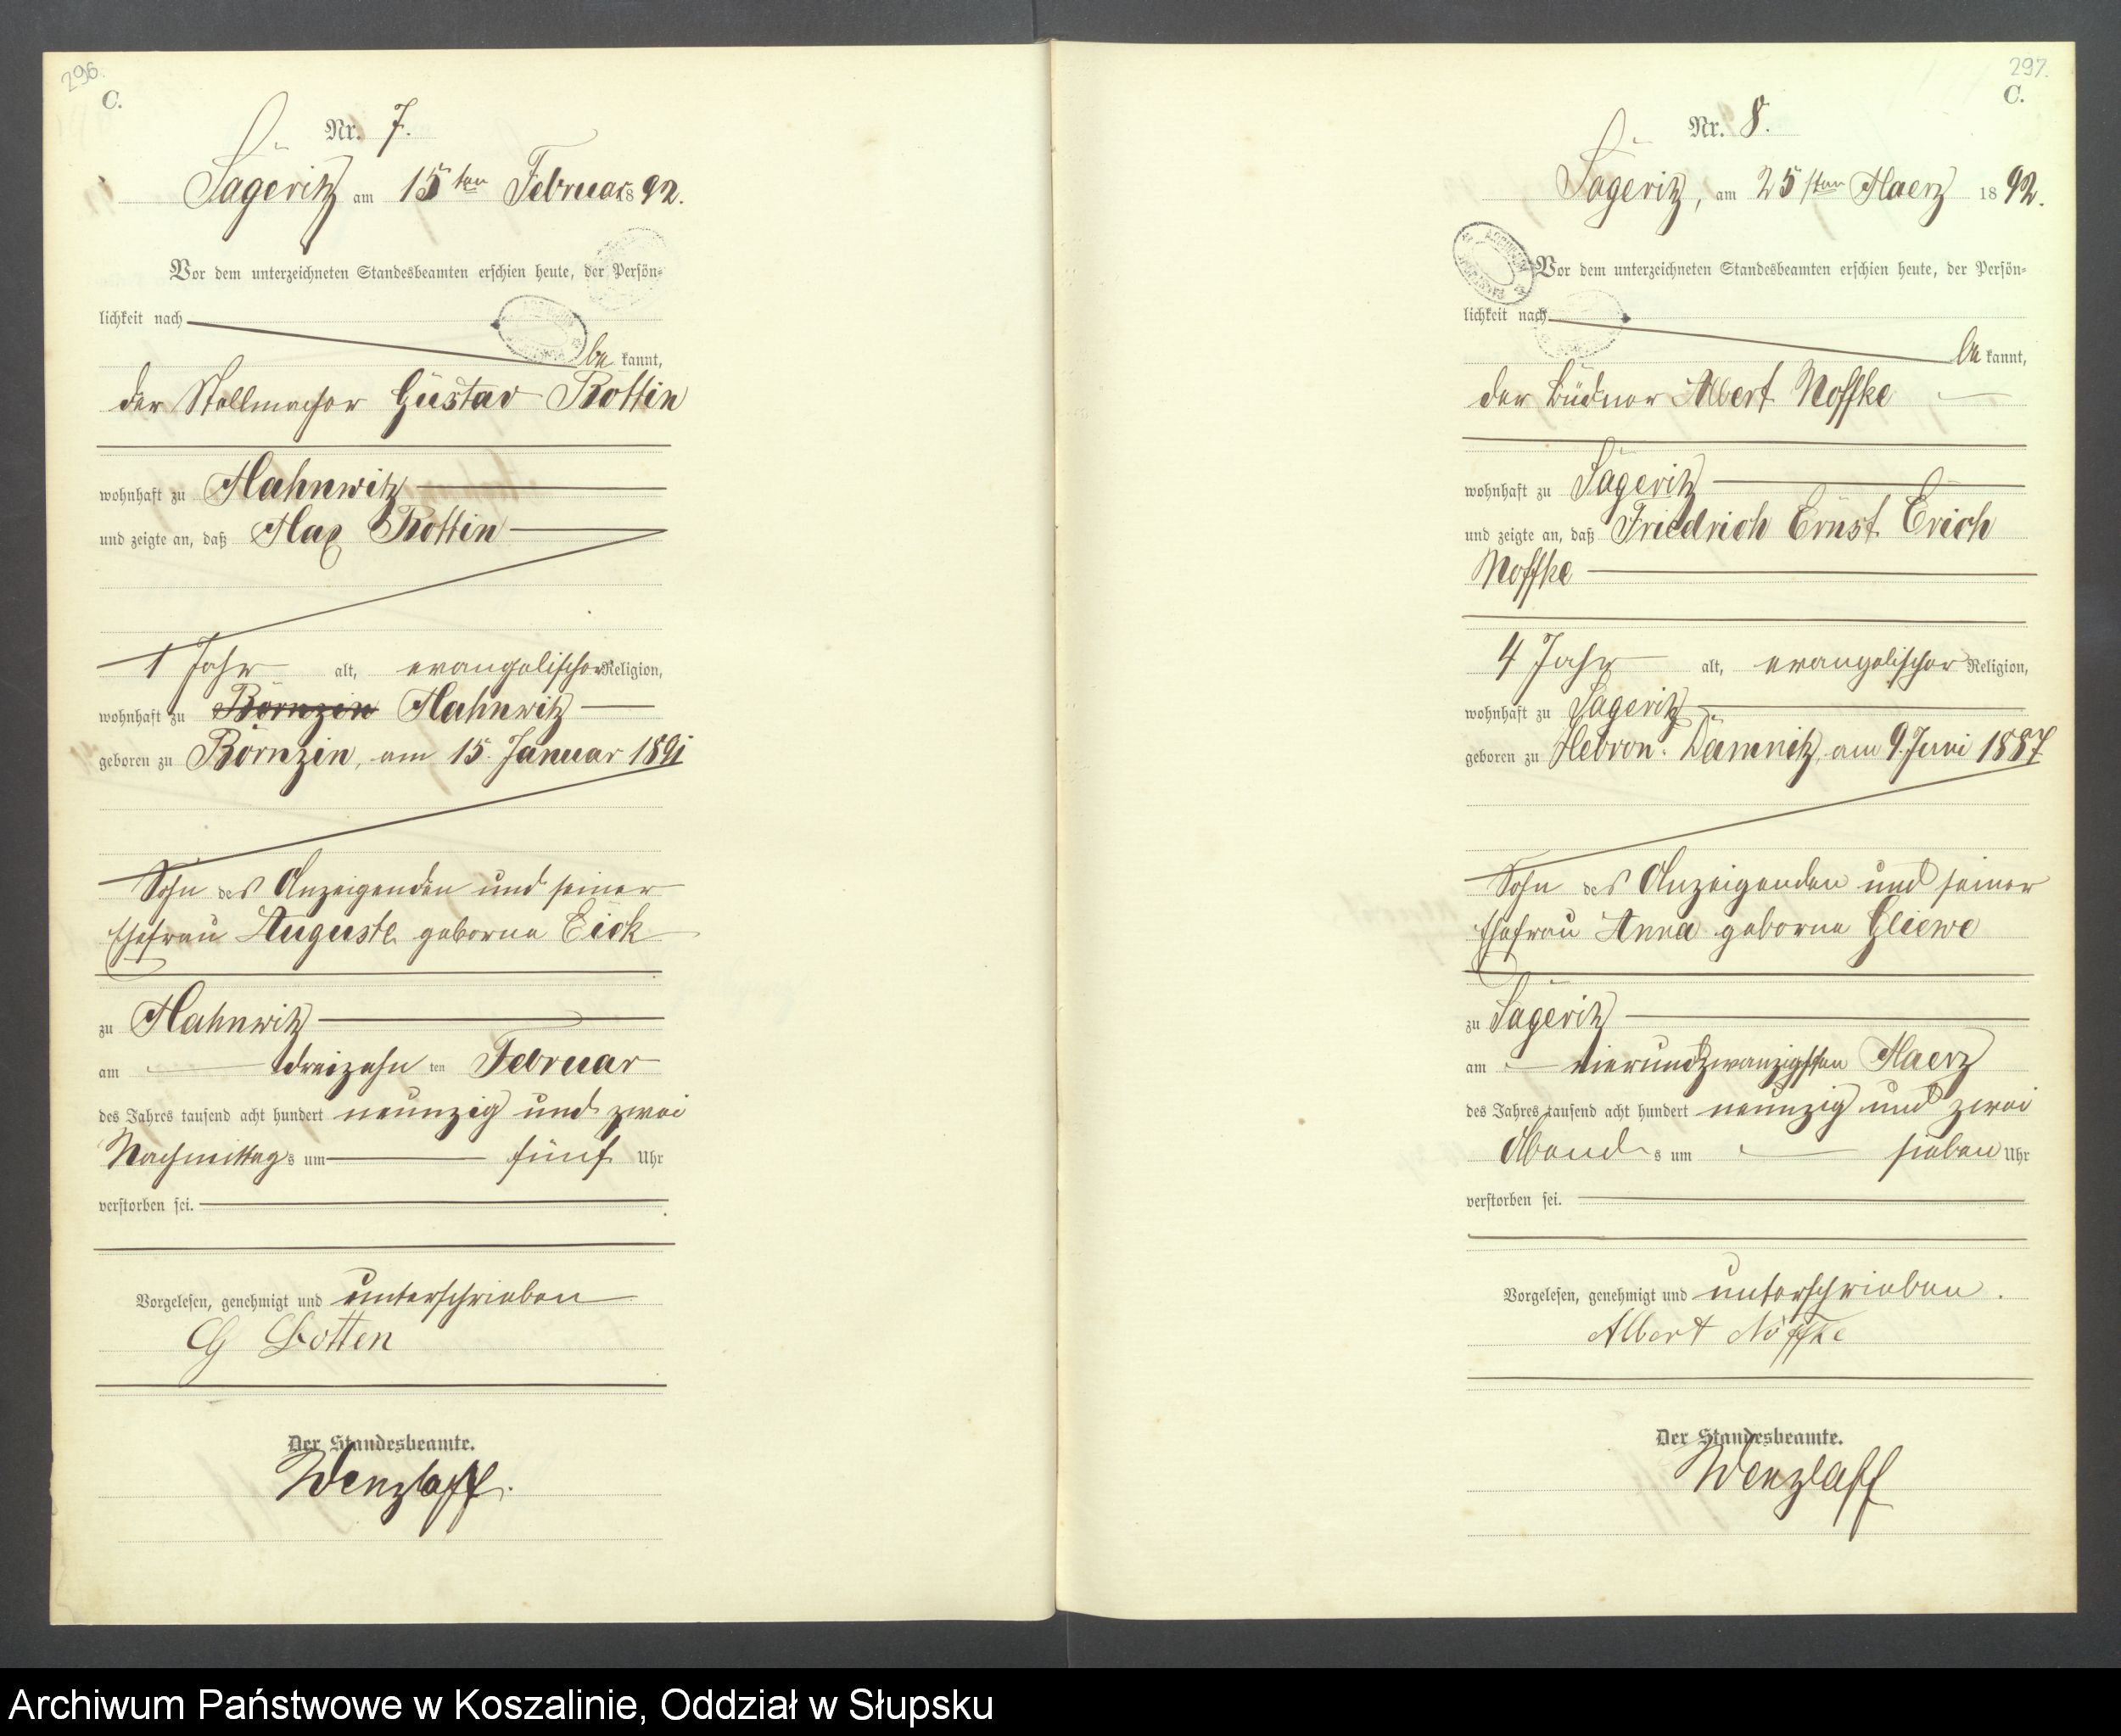 296.
C.
Nr. 7.
Sageritz am 15ten Februar 1892.
Vor dem unterzeichneten Standesbeamten erschien heute, der Persön-
lichkeit nach
be kannt,
der Stellmacher Gustav Bottin
wohnhaft zu Mahnwitz
und zeigte an, daß Max Bottin
1 Jahr alt, evangelischer Religion,
wohnhaft zu Börnzin Mahnwitz
geboren zu Börnzin, am 15. Januar 1891
Sohn des Anzeigenden und seiner
Ehefrau Auguste geborne Eick
zu Mahnwitz
am dreizehn ten Februar
des Jahres tausend acht hundert neunzig und zwei
Nachmittags um fünf Uhr
verstorben sei.
Vorgelesen, genehmigt und unterschrieben
G Botten
Der Standesbeamte.
Wenzlaff.
297.
C.
Nr. 8.
Sageritz, am 25sten Maerz 1892.
Vor dem unterzeichneten Standesbeamten erschien heute, der Persön-
lichkeit nach
be kannt,
der Büdner Albert Noffke
wohnhaft zu Sageritz
und zeigte an, daß Friedrich Ernst Erich
Noffke
4 Jahr alt, evangelischer Religion,
wohnhaft zu Sageritz
geboren zu Hebron-Damnitz, am 9. Juni 1887
Sohn des Anzeigenden und seiner
Ehefrau Anna geborne Gliewe
zu Sageritz
am vierundzwanzigsten Maerz
des Jahres tausend acht hundert neunzig und zwei
Abends um sieben Uhr
verstorben sei.
Vorgelesen, genehmigt und unterschrieben.
Albert Noffke
Der Standesbeamte.
Wenzlaff
Archiwum Państwowe w Koszalinie, Oddział w Słupsku